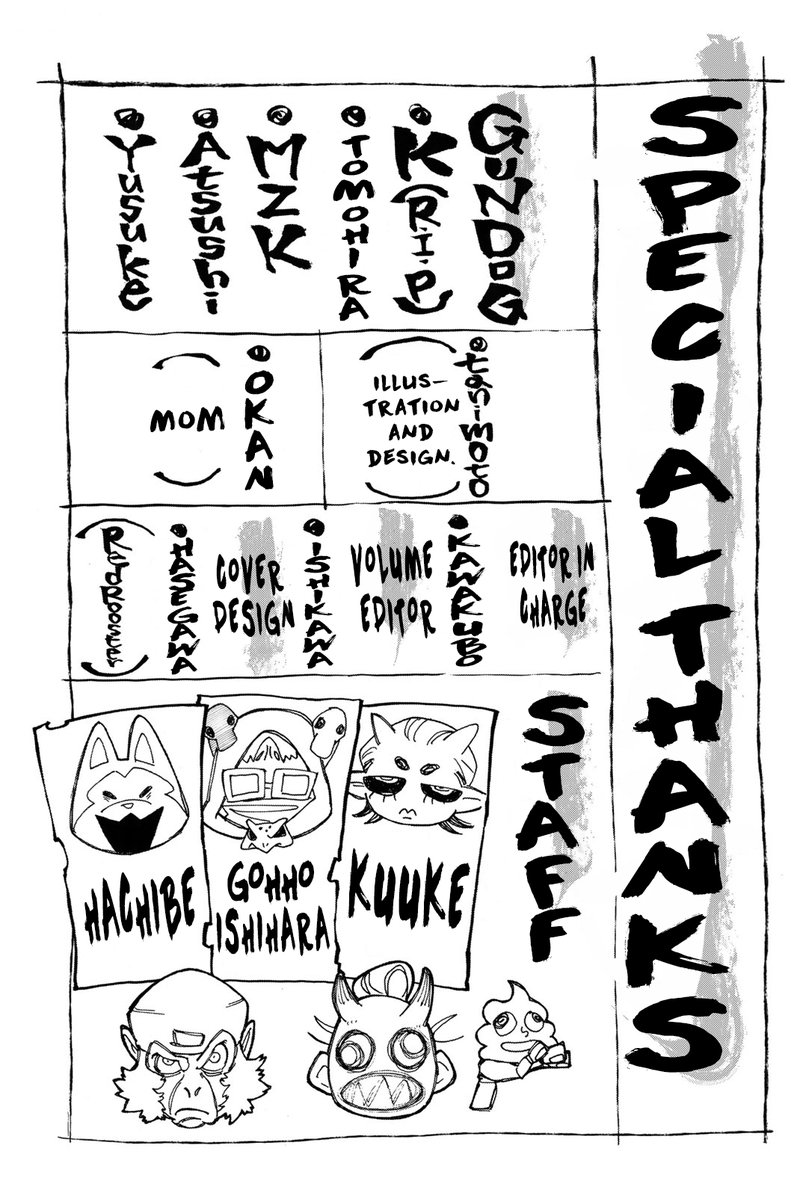 SPECIAL THANKS
GUNDOG
K(R.I.P)
TOMOHIRA
MZK
Atsushi
Yusuke
tanimoto
(ILLUS-
TRATION
AND
DESIGN.)
OKAN
(MOM)
EDITOR IN
CHARGE
KAWAKUBO
VOLUME
EDITOR
ISHIKAWA
COVER
DESIGN
HASEGAWA
(RedRooster)
STAFF
KUUKE
GOHHO
ISHIHARA
HACHIBE